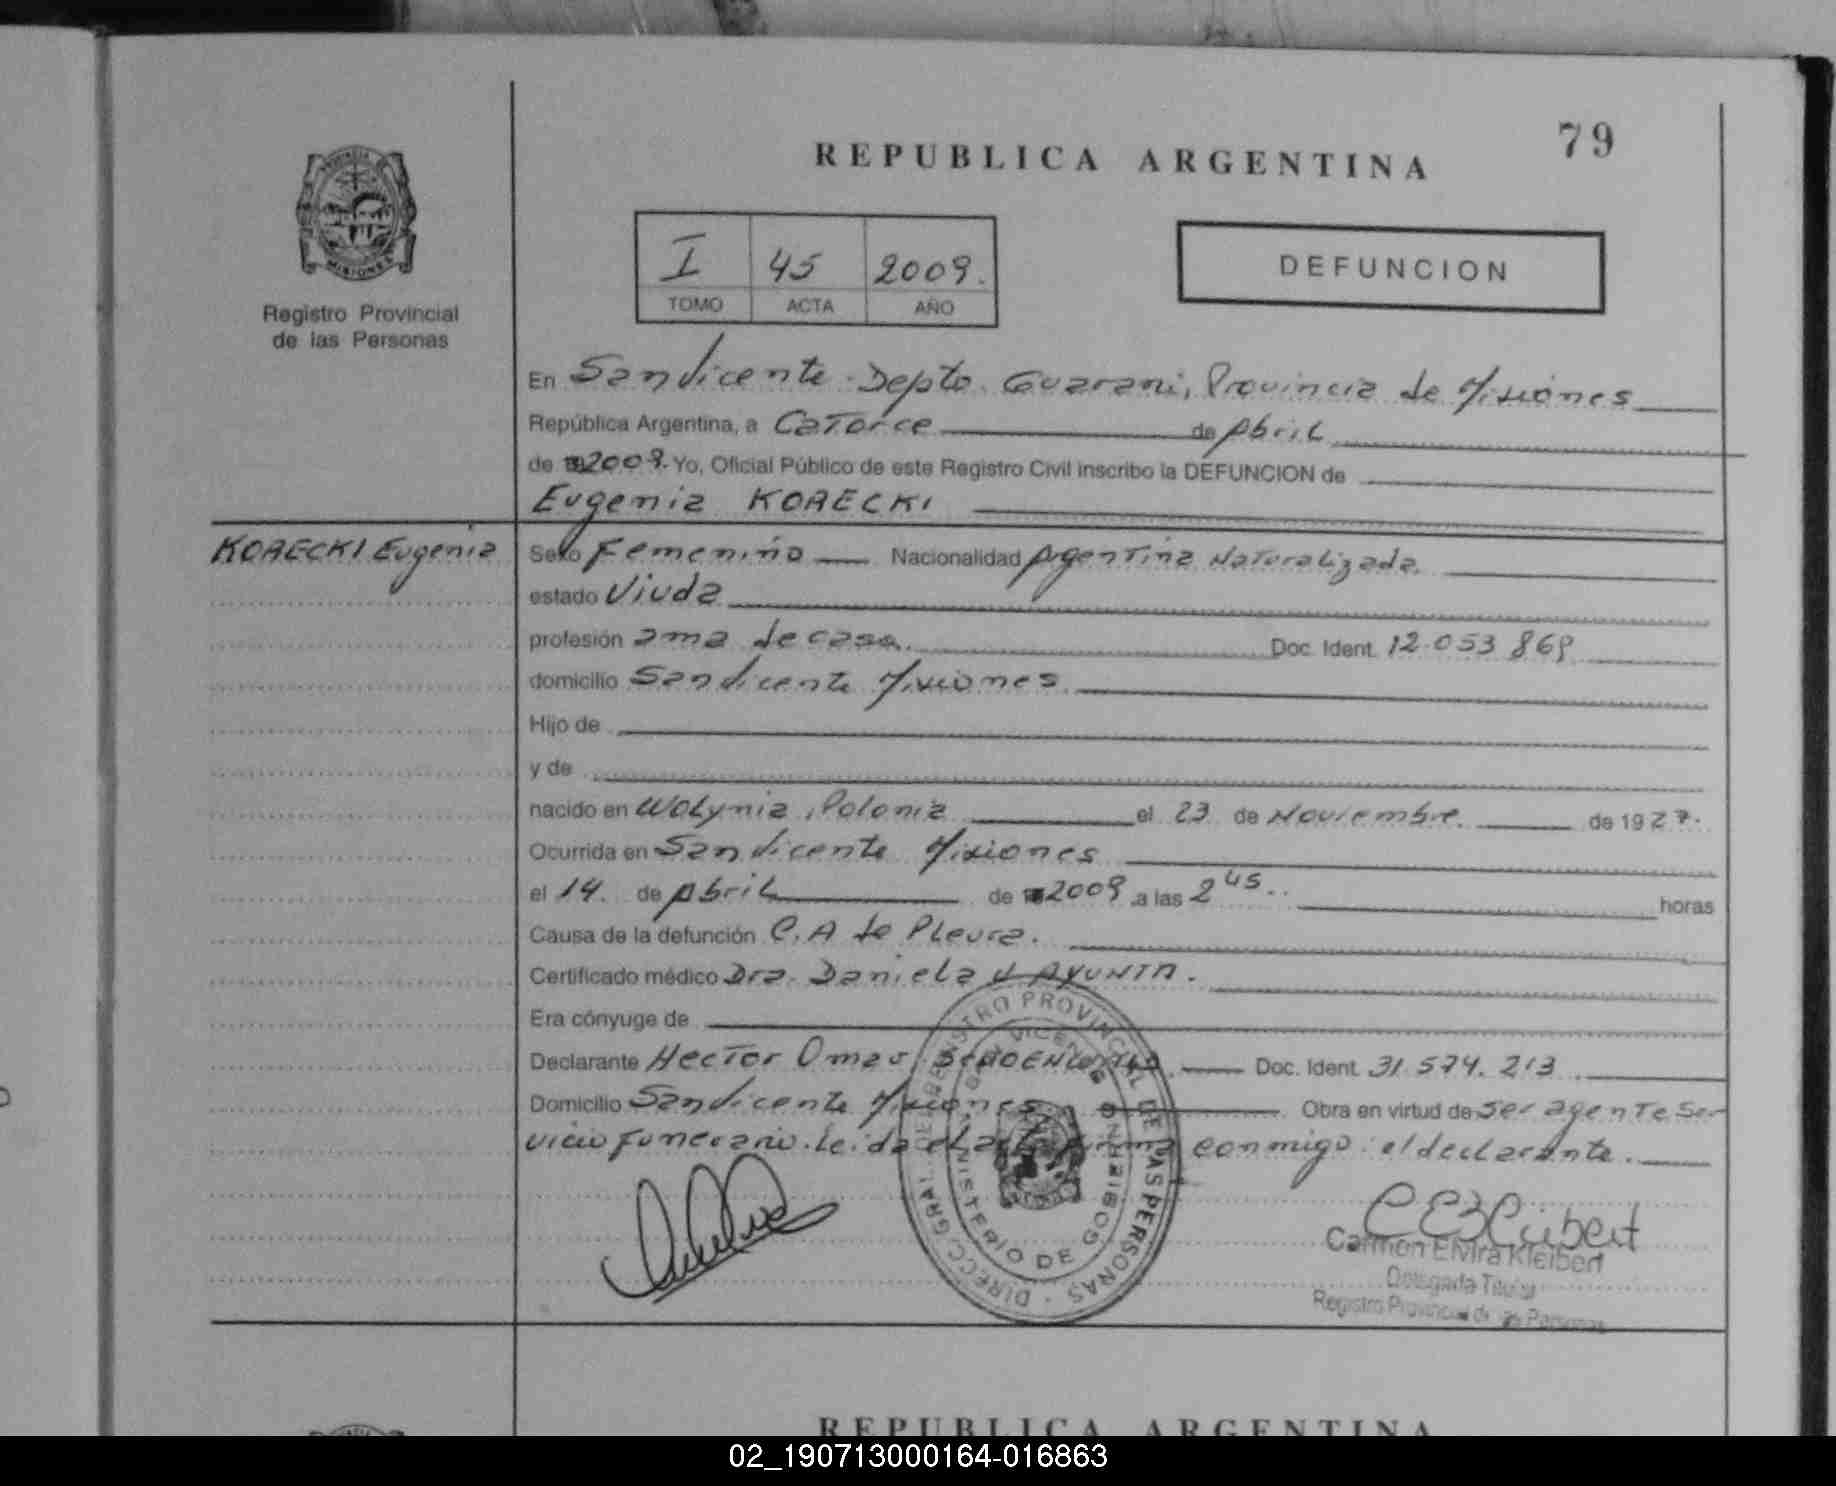 79
REPUBLICA ARGENTINA
PROVINCIA DE
MISIONES
Registro Provincial
de las Personas
I 45 2009.
TOMO ACTA AÑO
DEFUNCION
En San Vicente Depto Guarani, Provincia de Misiones
República Argentina, a Catorce de Abril
de 2009. Yo, Oficial Público de este Registro Civil inscribo la DEFUNCION de
Eugenia KORECKI
KORECKI Eugenia
Sexo Femenino Nacionalidad Argentina Naturalizada.
estado Viuda
profesión ama de casa. Doc. Ident. 12.053 869
domicilio San Vicente Misiones
Hijo de
y de
nacido en Wolynia, Polonia el 23 de Noviembre de 1927.
Ocurrida en San Vicente Misiones
el 14. de Abril de 2009 a las 2 45 horas
Causa de la defunción C.A de Pleura.
Certificado médico Dra. Daniela AYUNTA.
Era cónyuge de
Declarante Hector Omar Doc. Ident. 31.574.213
Domicilio San Vicente Misiones Obra en virtud de ser agente Ser-
vicio Funerario. Leida el acta firma conmigo el declarante.
DIRECC. GRAL. DEL REGISTRO PROVINCIAL DE LAS PERSONAS
SAN VICENTE
MINISTERIO DE GOBIERNO
Carmen Elvira Kleibert
Delegada Titular
Registro Provincial de las Personas
REPUBLICA ARGENTINA
02_190713000164-016863